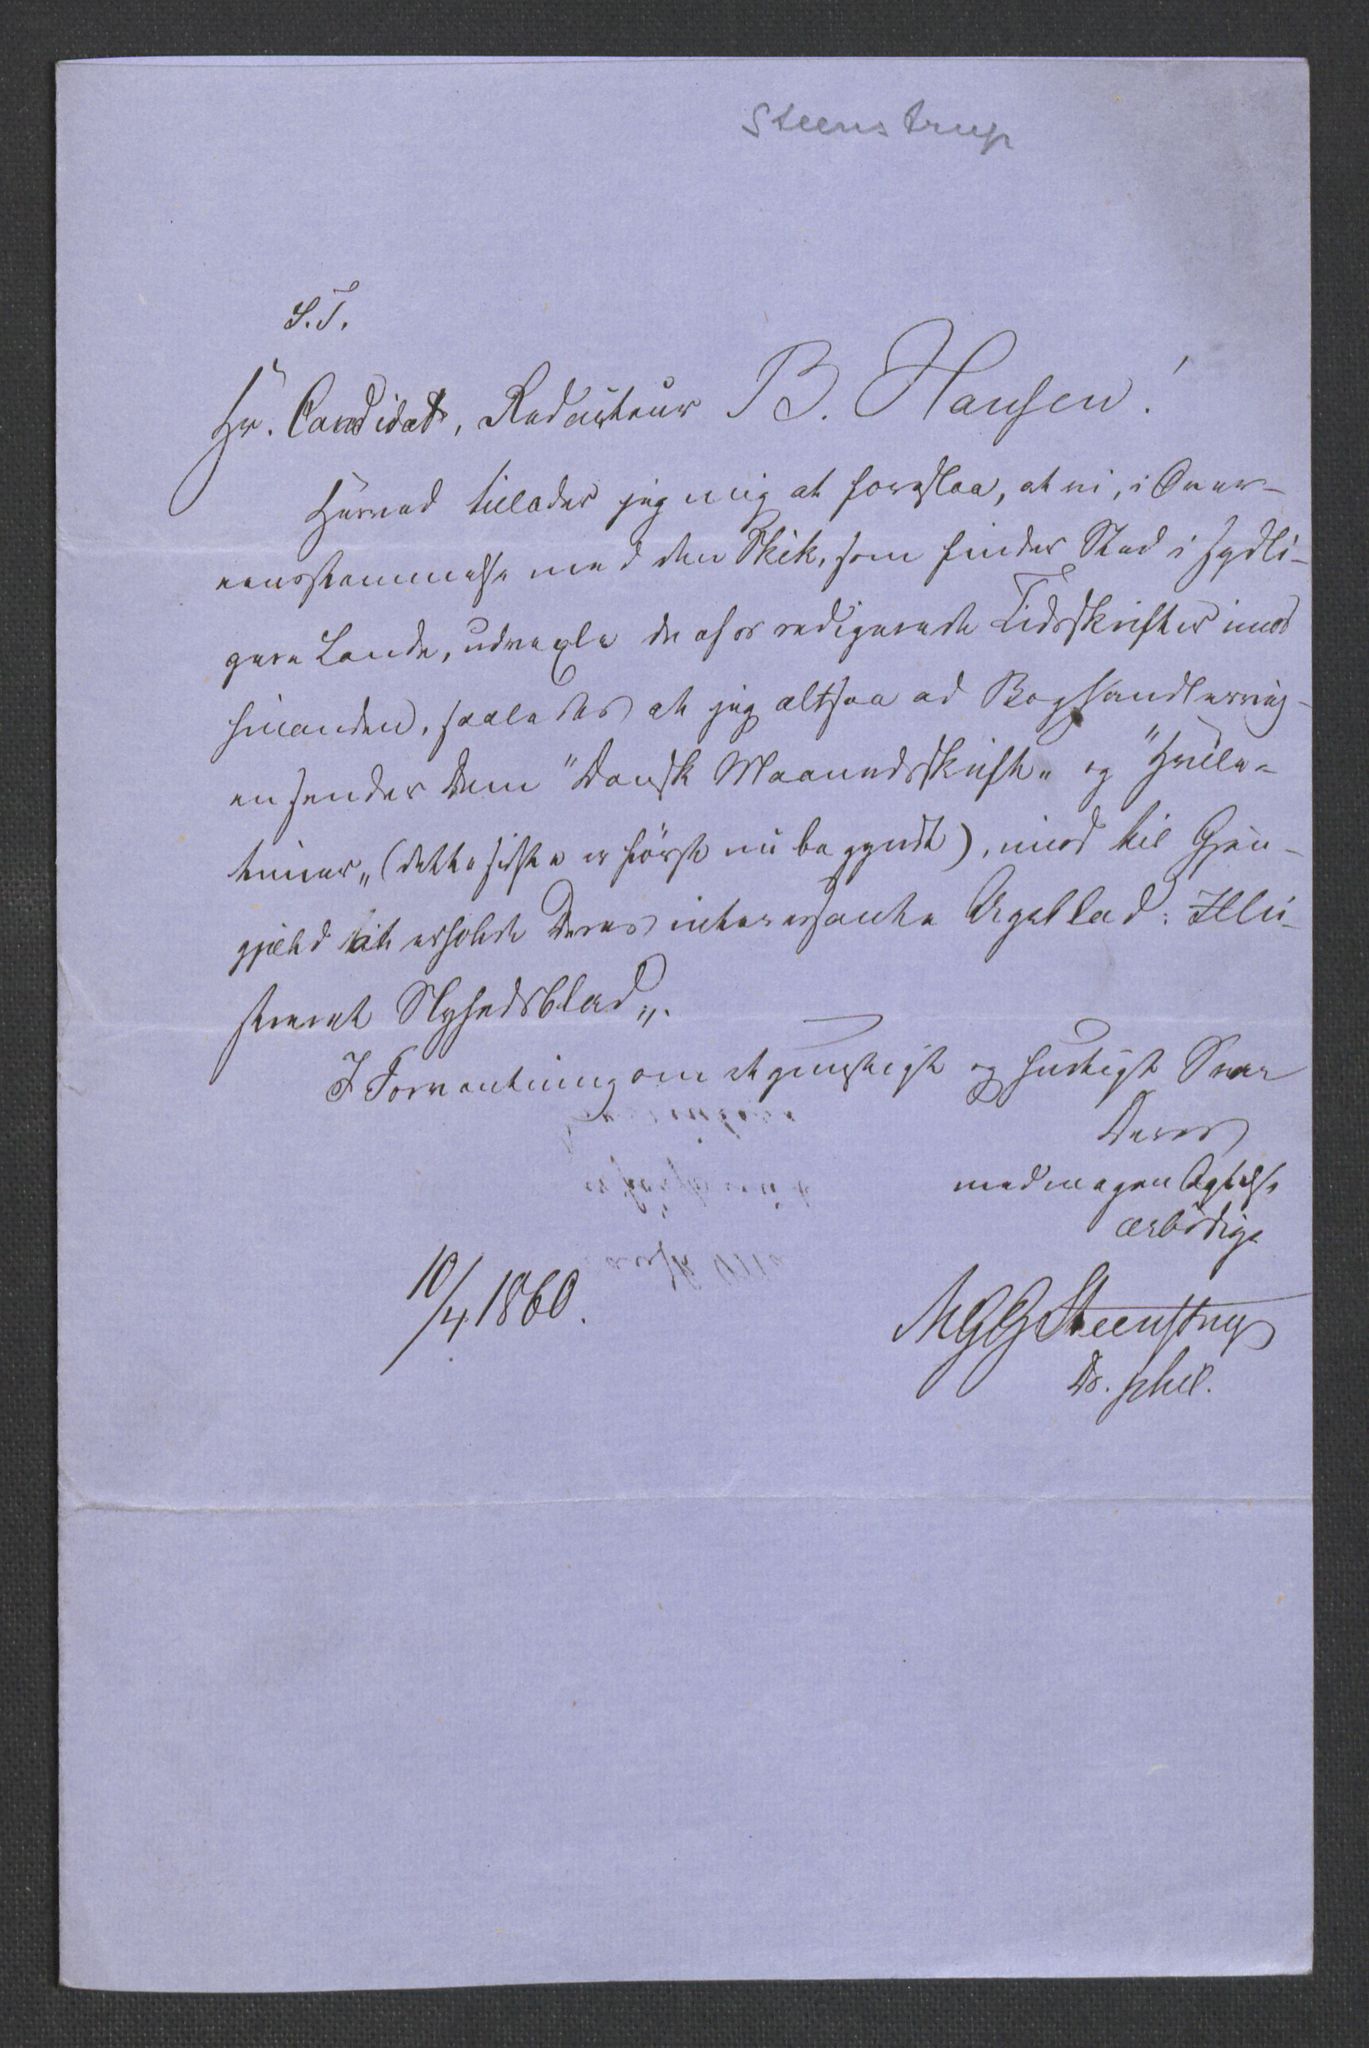 Steenstrup
S. T.
Hr. Candidat, Redacteur B. Hansen!
Hermed tillader jeg mig at foreslaa, at vi, i Over-
eensstemmelse med den Skik, som finder Sted i sydli-
gere Lande, udvexle de af os redigerede Tidsskrifter imod
hinanden, saaledes at jeg altsaa ad Boghandlervej-
en sender Dem "Dansk Maanedsskrift" og "Hvile-
timer" (dette sidste er først nu begyndt), imod til Gjen-
gjæld at erholde Deres interessante Ugeblad: Illu-
streret Nyhedsblad".
I Forventning om et gunstigt og hurtigt Svar
Deres
med megen Agtelse
ærbødige
10/4 1860.
MGGSteenstrup
Dr. phil.